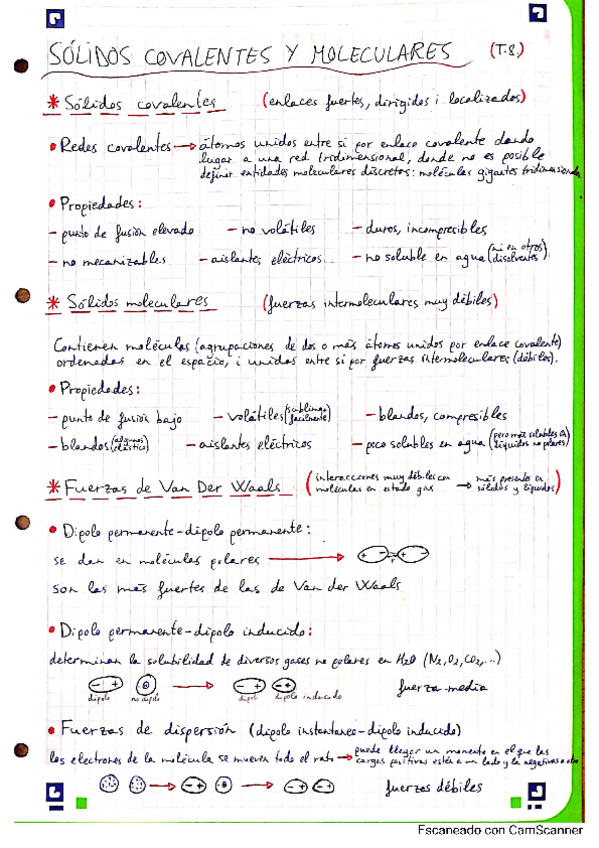 SÓLIDOS COVALENTES Y MOLECULARES (T.8.)
* Sólidos covalentes (enlaces fuertes, dirigidos i localizados)
• Redes covalentes → átomos unidos entre si por enlace covalente dando
lugar a una red tridimensional, donde no es posible
definir entidades moleculares discretas: moléculas gigantes tridimensionales
• Propiedades:
- punto de fusión elevado - no volátiles - duros, incompresibles
- no mecanizables - aislantes eléctricos - no soluble en agua (ni en otros disolventes)
* Sólidos moleculares (fuerzas intermoleculares muy débiles)
Contienen moléculas (agrupaciones de dos o más átomos unidos por enlace covalente)
ordenadas en el espacio, i unidas entre si por fuerzas intermoleculares (débiles).
• Propiedades:
- punto de fusión bajo - volátiles (sublimga facilmente) - blandos, compresibles
- blandos (algunos elástico) - aislantes eléctricos - poco solubles en agua (pero más solubles en líquidos no polares)
* Fuerzas de Van Der Waals (interacciones muy débiles en → más presente en
moléculas en estado gas sólidos y líquidos)
• Dipolo permanente-dipolo permanente:
se dan en moléculas polares →
son las más fuertes de las de Van der Waals
• Dipolo permanente-dipolo inducido:
determinan la solubilidad de diversos gases no polares en H2O (N2, O2, CO2,...)
dipolo no dipolo dipolo dipolo inducido fuerza media
• Fuerzas de dispersión (dipolo instantaneo-dipolo inducido)
los electrones de la molécula se mueven todo el rato → puede llegar un momento en el que las
cargas positivas estén a un lado y las negativas a otro
fuerzas débiles
Escaneado con CamScanner